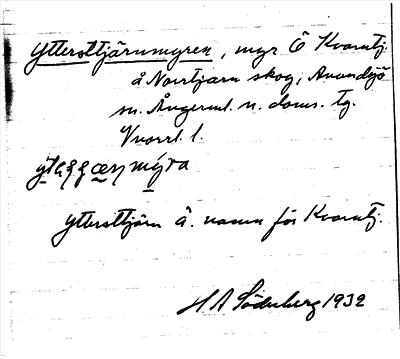 Yttersttjärnmyren, myr Ö Kvarntj.
å Norrtjärn skog, Anundsjö
sn. Ångerml. n. doms. tg.
Vnorrl. l.
Yttersttjärn ä. namn för Kvarntj.
H A Söderberg 1932